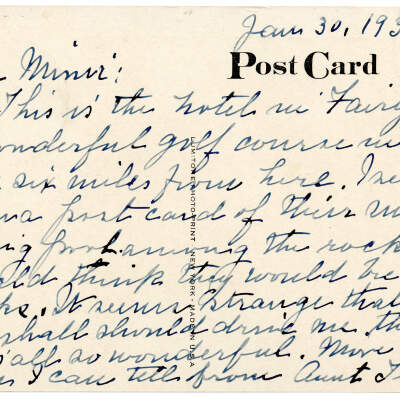 Jan 30, 193
Post Card
Minir:
This is the hotel in Fair
onderful golf course in
six miles from here. I se
a post card of their
ing pool among the rock
ld think they would be
ks. It seems strange that
shall should drive me th
all so wonderful. More
I can tell from Aunt
LUMITONE PHOTOPRINT NEW YORK · MADE IN U.S.A.